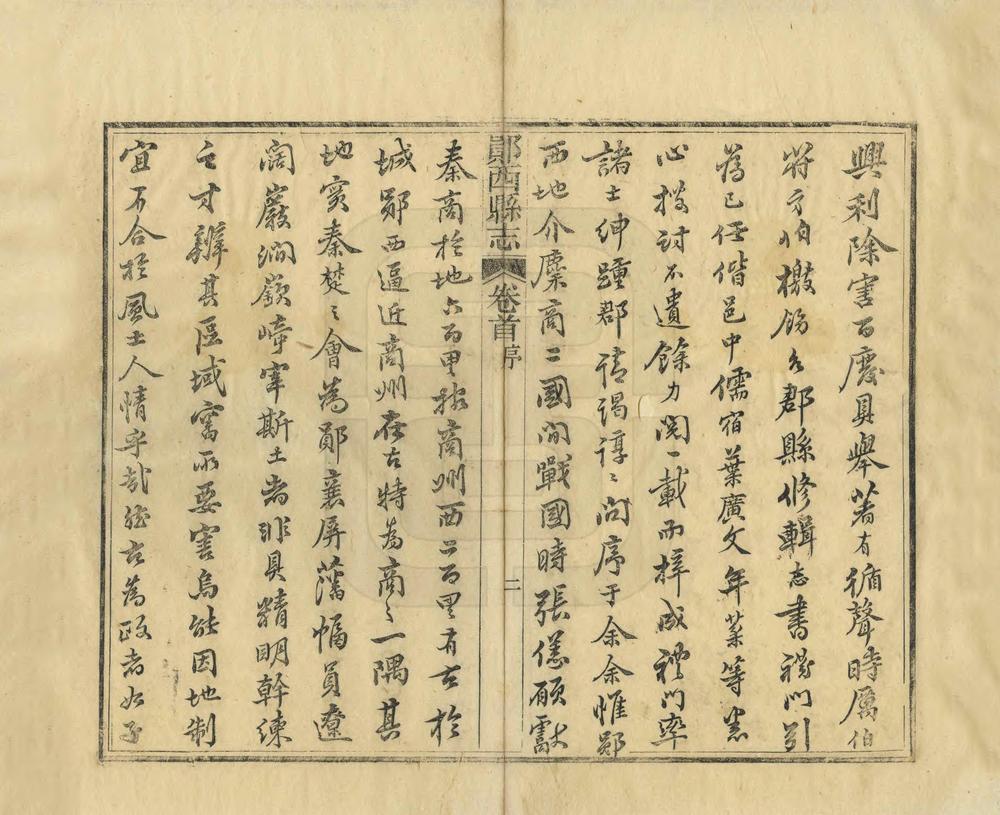 興利除害百廢具舉著有循聲時厲伯
符方伯檄飭各郡縣修輯志書禊門引
為己任偕邑中儒宿葉廣文年棻等悉
心搜討不遺餘力閱一載而梓成禊門率
諸士紳踵郡請謁諄諄問序于余余惟鄖
西地介麇商二國間戰國時張儀願獻
鄖西縣志 卷首 序 二
秦商於地六百里按商州西二百里有古於
城鄖西逼近商州在古特為商之一隅其
地實秦楚之會為鄖襄屏藩幅員遼
闊巖澗嶔崎宰斯土者非具精明幹練
之才辨其區域審所要害烏能因地制
宜不合於風土人情乎哉 古為政者如子